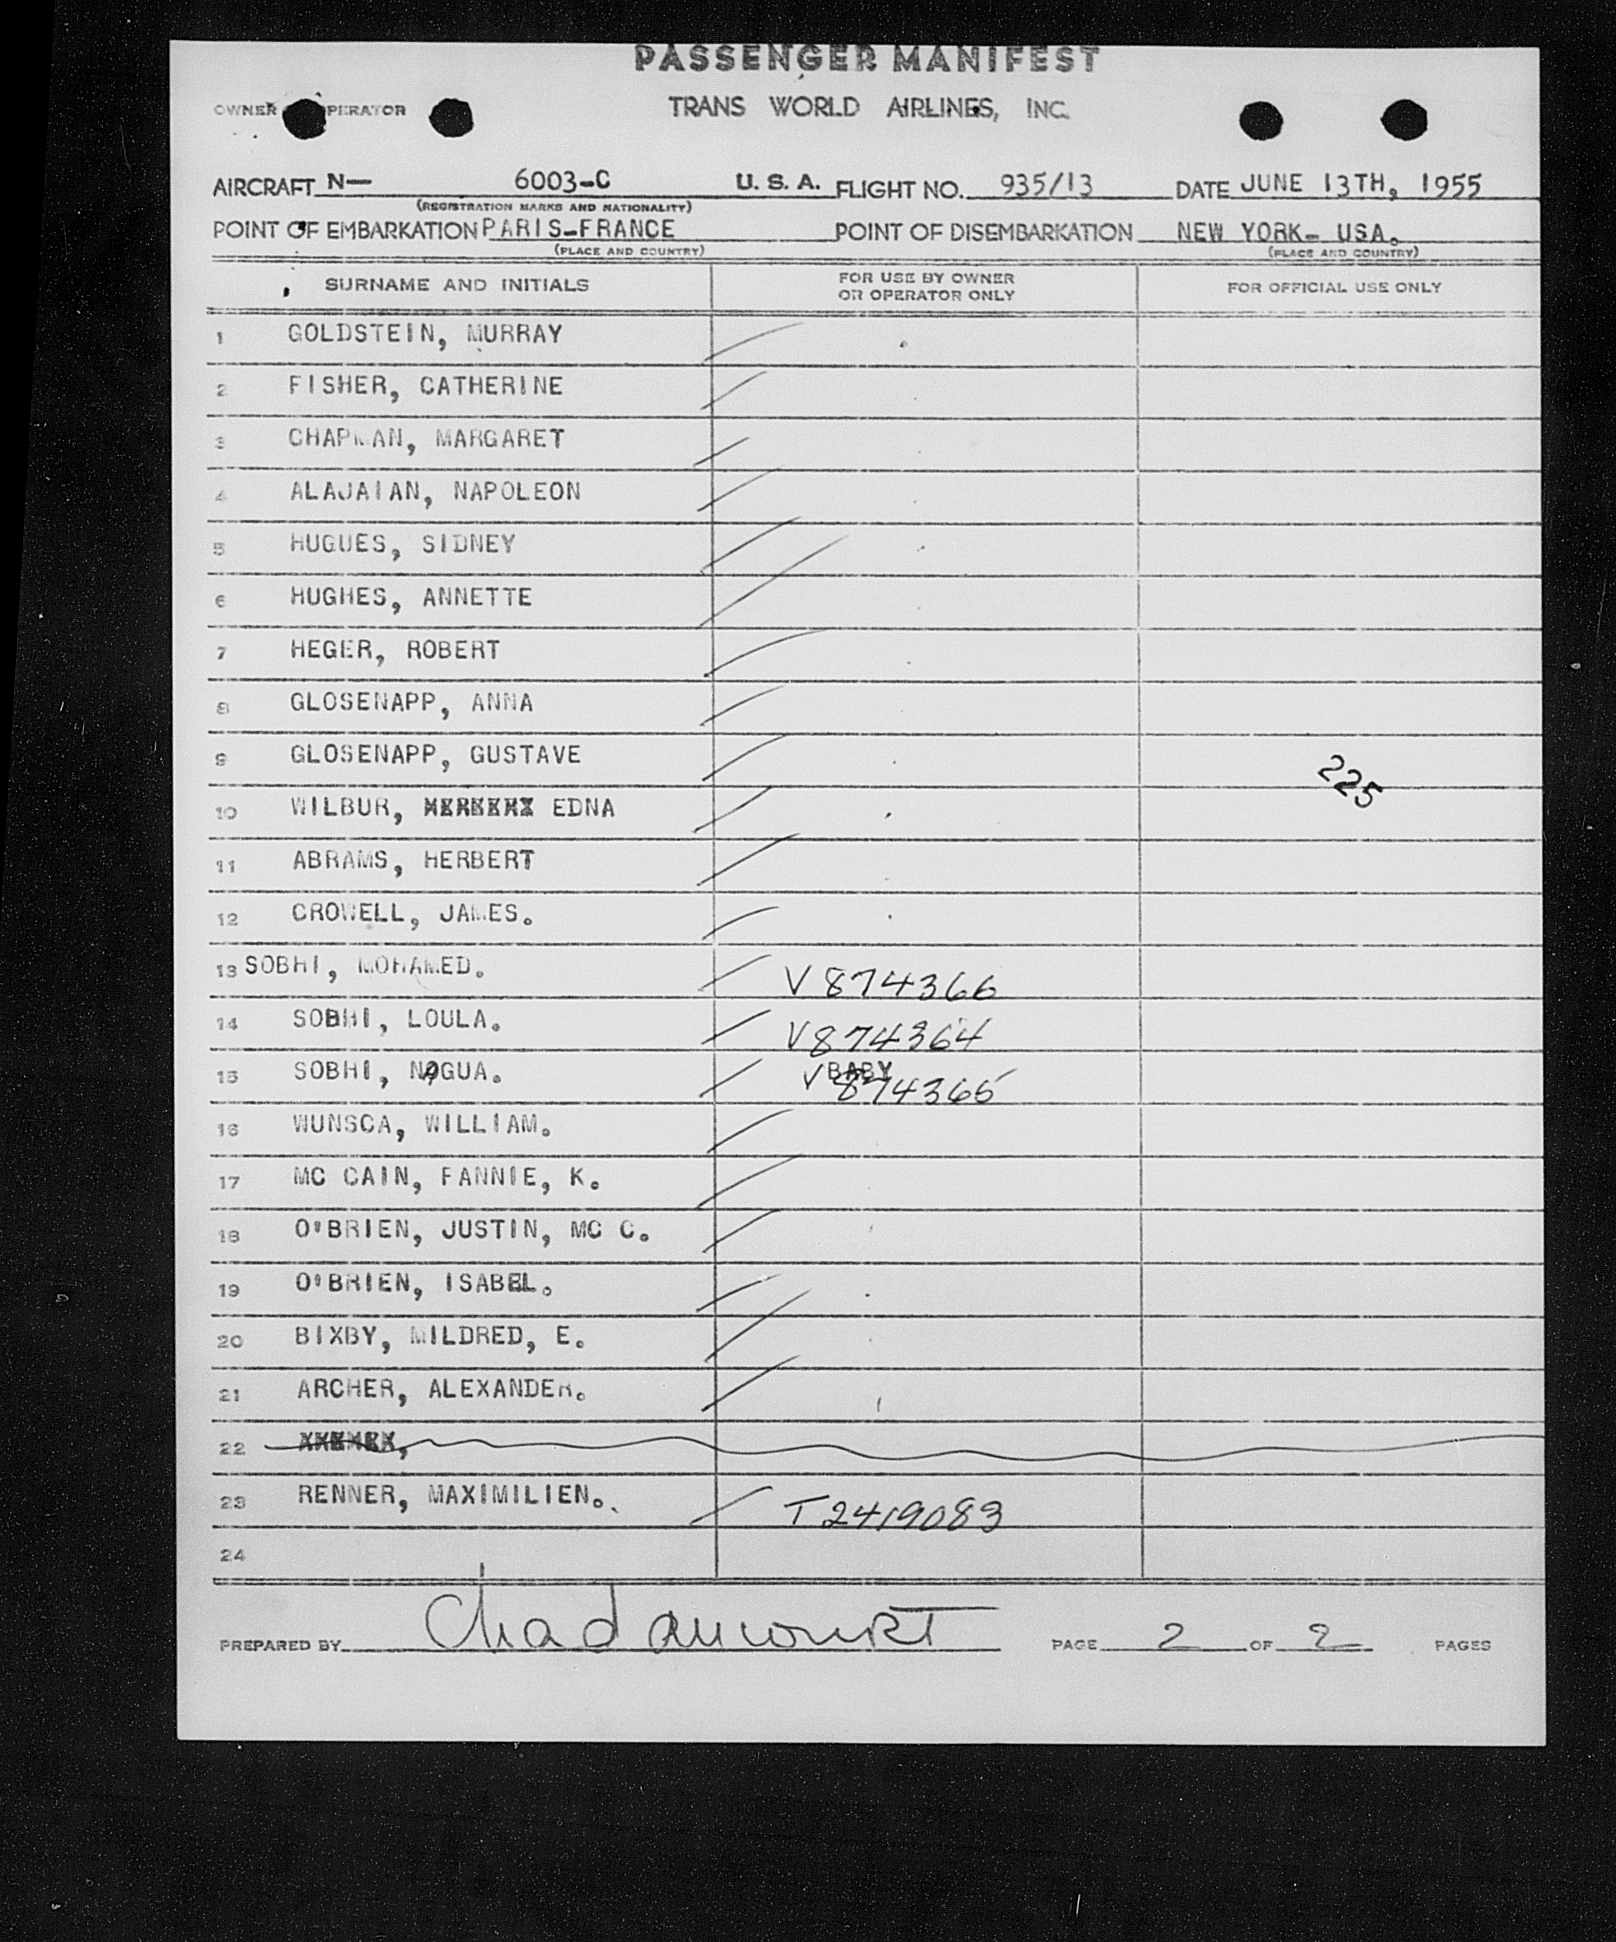 PASSENGER MANIFEST
OWNER OPERATOR TRANS WORLD AIRLINES, INC.
AIRCRAFT N— 6003-C U. S. A. FLIGHT NO. 935/13 DATE JUNE 13TH, 1955
(REGISTRATION MARKS AND NATIONALITY)
POINT OF EMBARKATION PARIS-FRANCE POINT OF DISEMBARKATION NEW YORK- USA.
(PLACE AND COUNTRY) (PLACE AND COUNTRY)
SURNAME AND INITIALS FOR USE BY OWNER OR OPERATOR ONLY FOR OFFICIAL USE ONLY
1 GOLDSTEIN, MURRAY
2 FISHER, CATHERINE
3 CHAPMAN, MARGARET
4 ALAJAIAN, NAPOLEON
5 HUGUES, SIDNEY
6 HUGHES, ANNETTE
7 HEGER, ROBERT
8 GLOSENAPP, ANNA
9 GLOSENAPP, GUSTAVE
225
10 WILBUR, EDNA
11 ABRAMS, HERBERT
12 CROWELL, JAMES.
13 SOBHI, MOHAMED. V 874366
14 SOBHI, LOULA. V874364
15 SOBHI, NAGUA. BABY V 874365
16 WUNSCA, WILLIAM.
17 MC CAIN, FANNIE, K.
18 O'BRIEN, JUSTIN, MC C.
19 O'BRIEN, ISABEL.
20 BIXBY, MILDRED, E.
21 ARCHER, ALEXANDER.
22
23 RENNER, MAXIMILIEN. T2419083
24
PREPARED BY PAGE 2 OF 2 PAGES